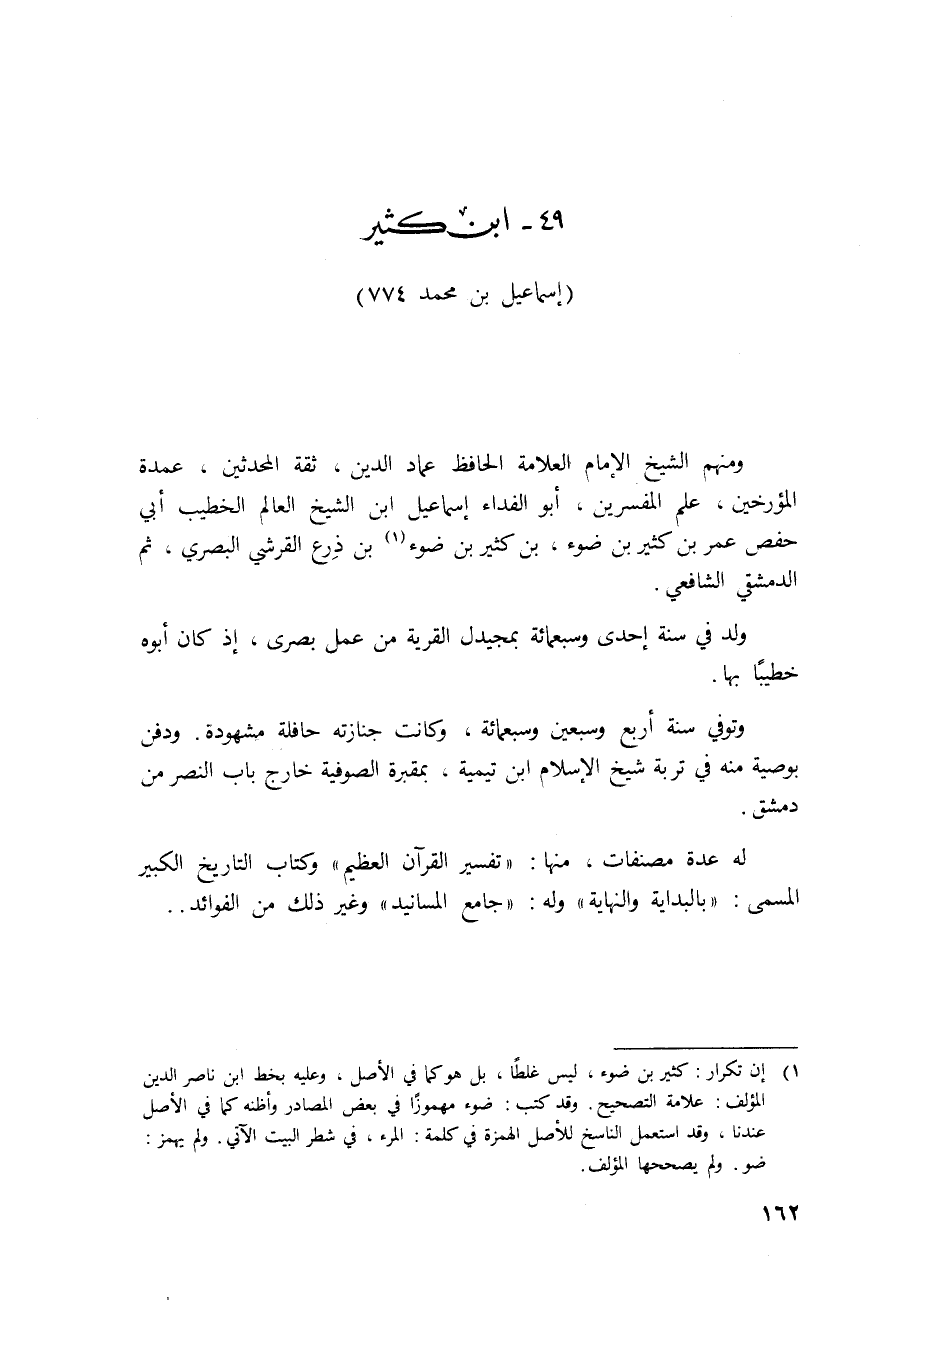 ٤٩ - ابن كثير
(إسماعيل بن محمد ٧٧٤)
ومنهم الشيخ الإمام العلامة الحافظ عماد الدين ، ثقة المحدثين ، عمدة
المؤرخين ، علم المفسرين ، أبو الفداء إسماعيل ابن الشيخ العالم الخطيب أبي
حفص عمر بن كثير بن ضوء ، بن كثير بن ضوء(١) بن ذِرع القرشي البصري ، ثم
الدمشقي الشافعي .
ولد في سنة إحدى وسبعمائة بمجيدل القرية من عمل بصرى ، إذ كان أبوه
خطيبًا بها .
وتوفي سنة أربع وسبعين وسبعمائة ، وكانت جنازته حافلة مشهودة . ودفن
بوصية منه في تربة شيخ الإسلام ابن تيمية ، بمقبرة الصوفية خارج باب النصر من
دمشق .
له عدة مصنفات ، منها : «تفسير القرآن العظيم» وكتاب التاريخ الكبير
المسمى : «بالبداية والنهاية» وله : «جامع المسانيد» وغير ذلك من الفوائد . .
١) إن تكرار : كثير بن ضوء ، ليس غلطًا ، بل هو كما في الأصل ، وعليه بخط ابن ناصر الدين
المؤلف : علامة التصحيح . وقد كتب : ضوء مهموزًا في بعض المصادر وأظنه كما في الأصل
عندنا ، وقد استعمل الناسخ للأصل الهمزة في كلمة : المرء ، في شطر البيت الآتي . ولم يهمز :
ضو . ولم يصححها المؤلف .
١٦٢